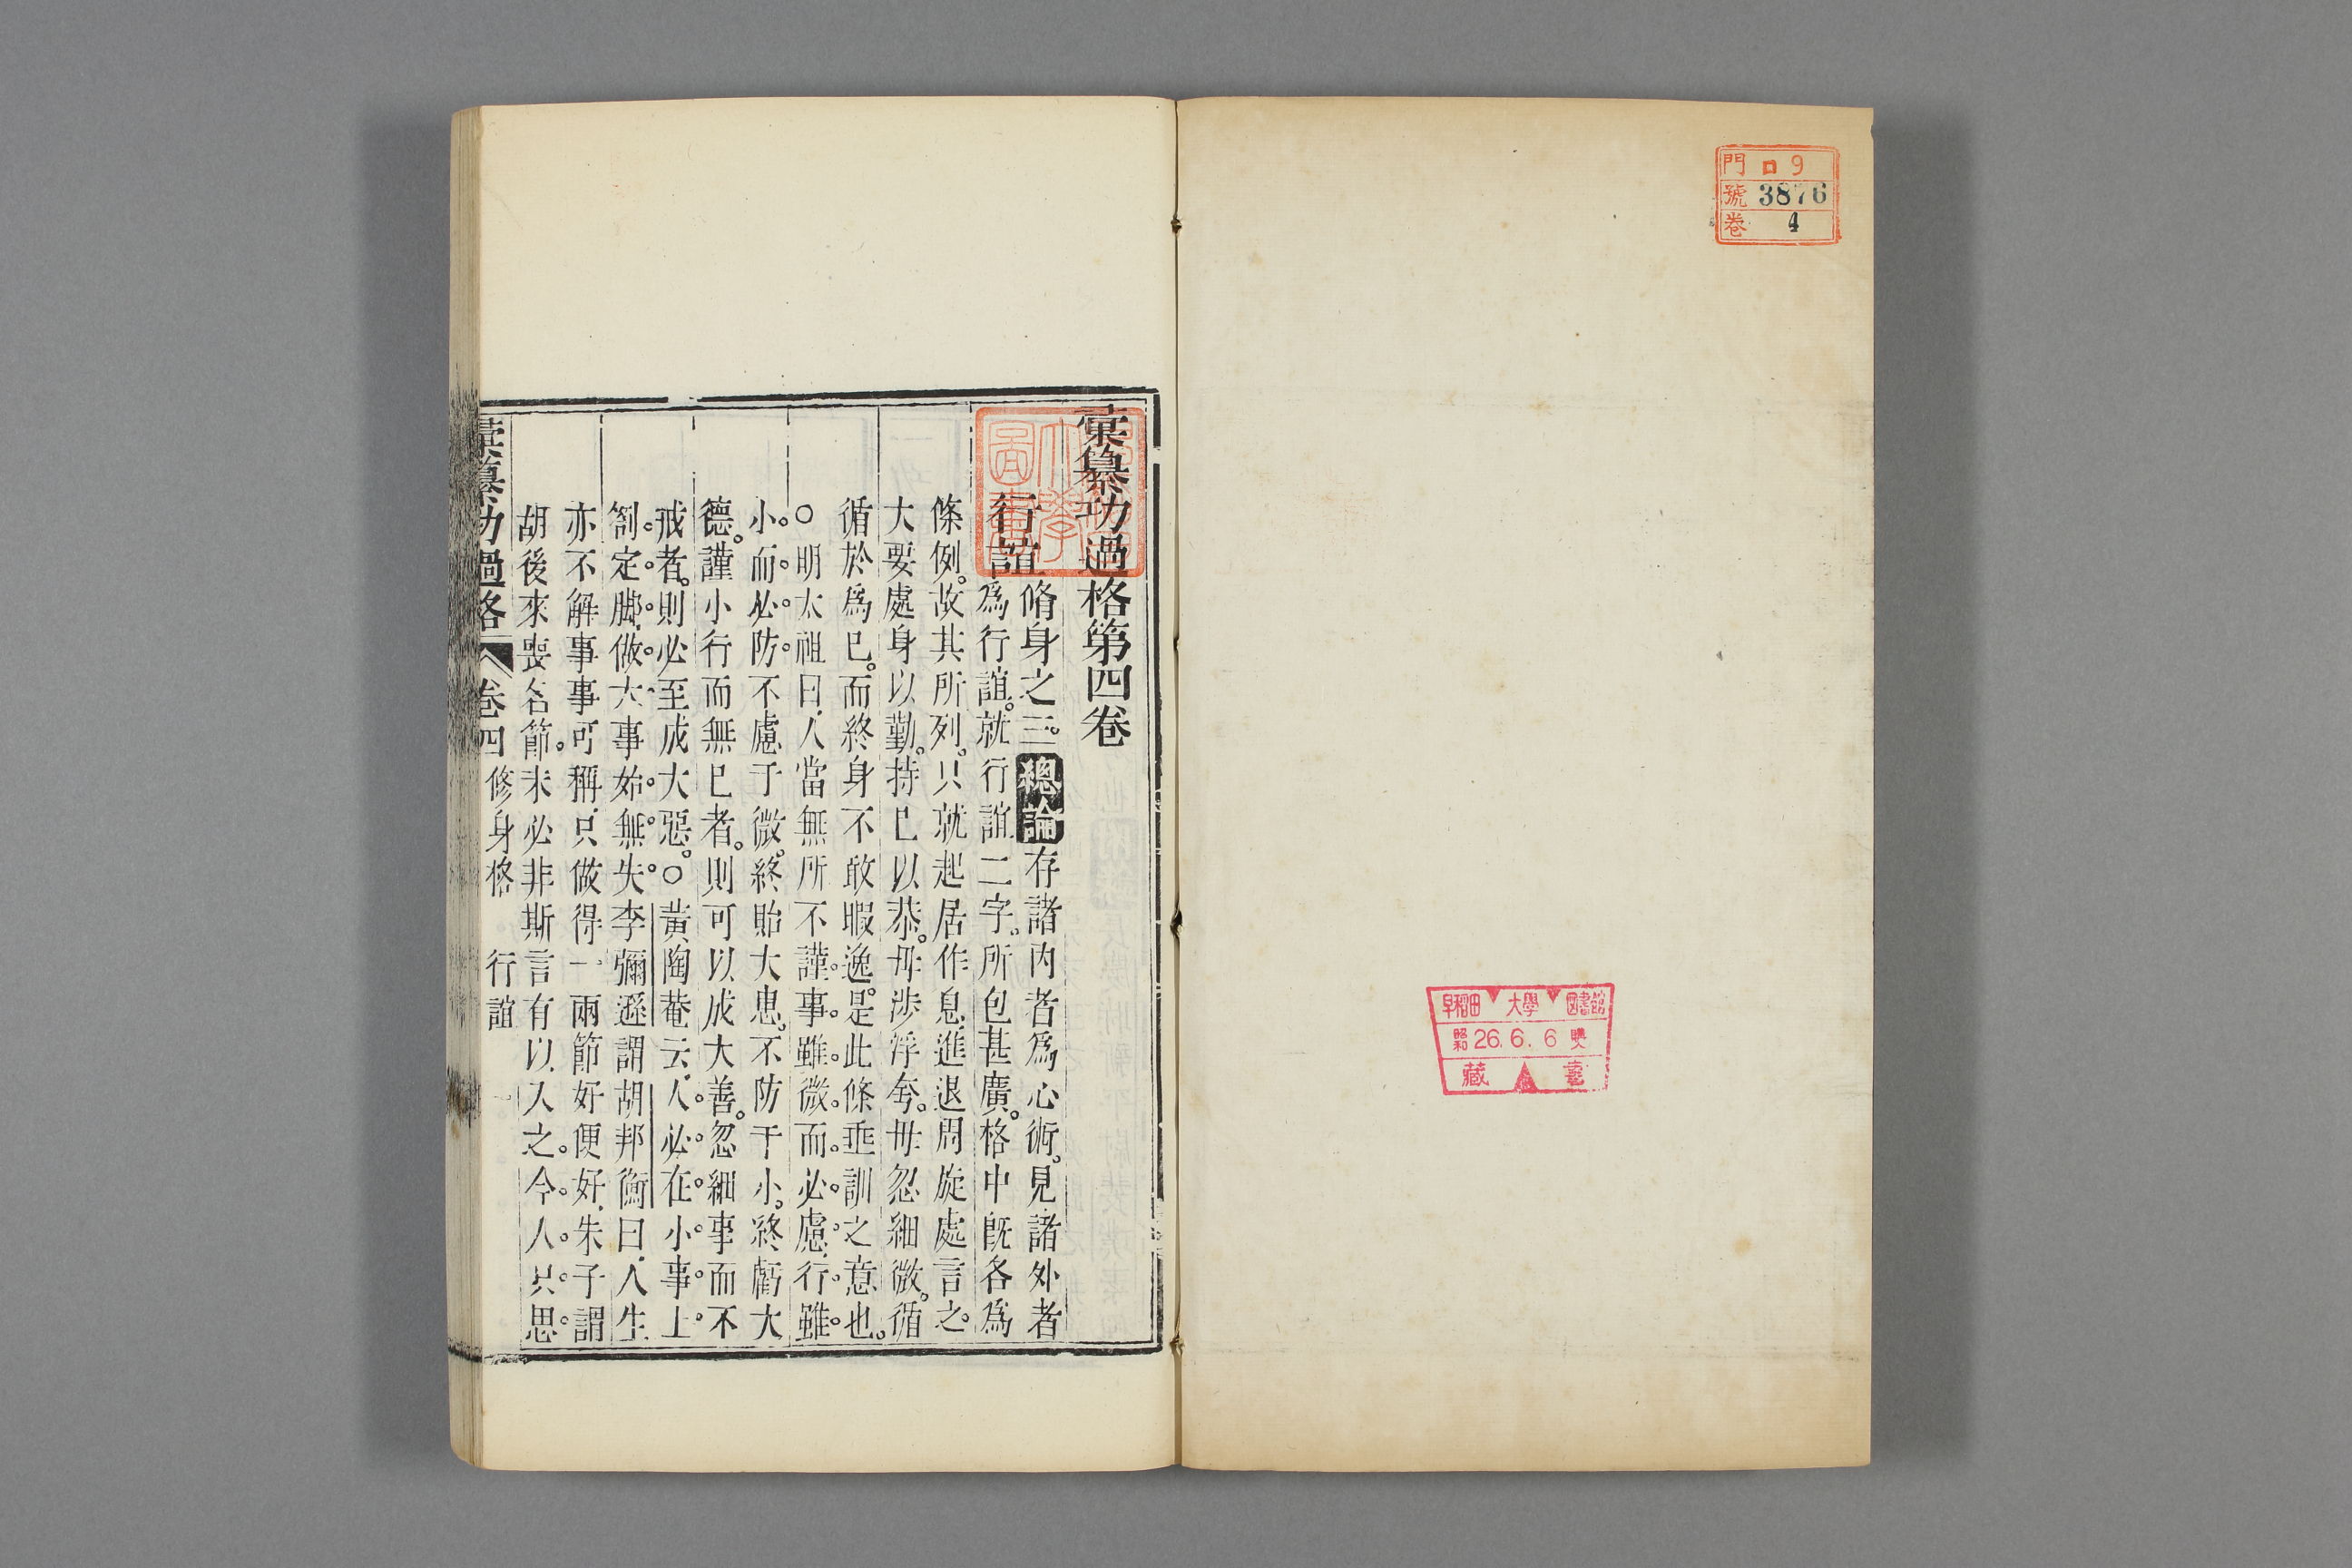 門 ロ 9
號 3876
卷 4
早稻田 大學 圖書館
昭和 26.6.6
藏
彙纂功過格第四卷
行誼
脩身之三。總論存諸內者爲心術。見諸外者
爲行誼。就行誼二字。所包甚廣。格中旣各爲
條例。故其所列。只就起居作息進退周旋處言之。
大要處身以勤。持己以恭。毋涉浮夸。毋忽細微。循
循於爲已。而終身不敢暇逸。是此條垂訓之意也。
○明太祖曰、人當無所不謹。事雖微。而必慮。行雖
小。而必防。不慮于微。終貽大患。不防于小。終虧大
德。謹小行而無已者。則可以成大善。忽細事而不
戒者。則必至成大惡。○黃陶菴云、人必在小事上
劄定脚。做大事始無失。李彌遜謂胡邦衡曰、人生
亦不解事事可稱、只做得一兩節好便好、朱子謂
胡後來喪名節。未必非斯言有以入之。今人只思
彙纂功過格 卷四 修身格 行誼 一